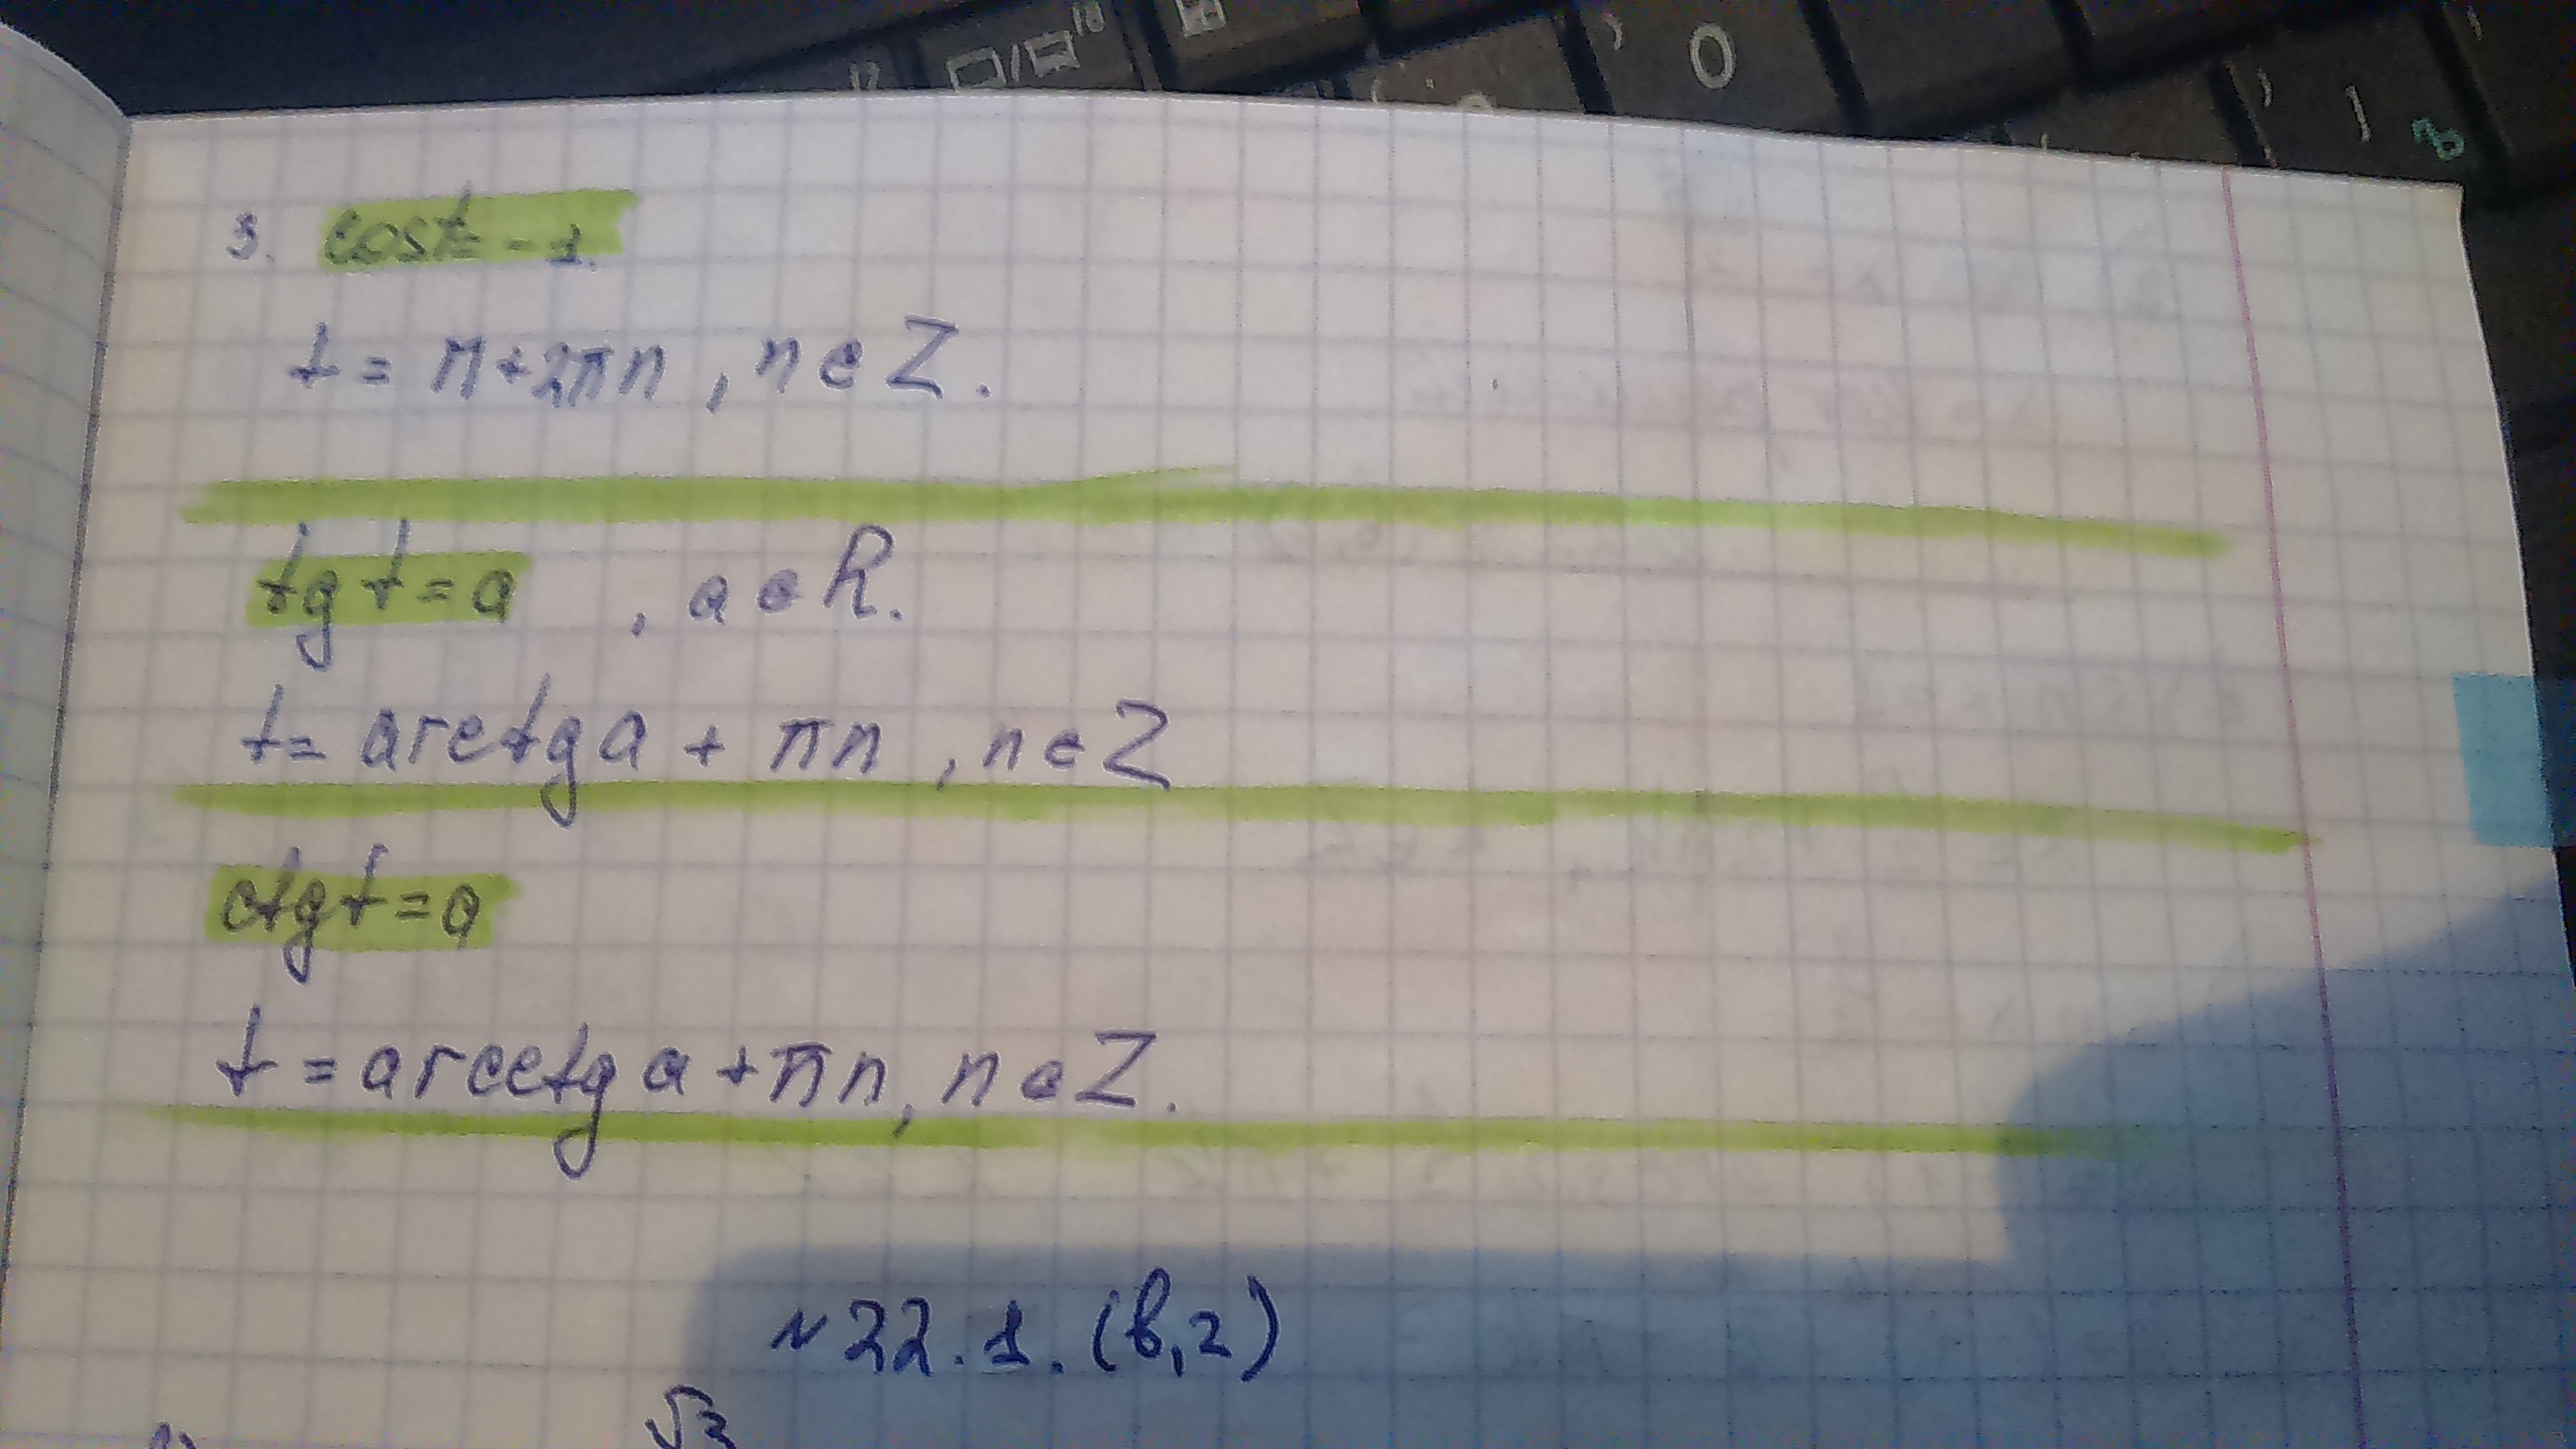 3. cost = -1.
t = π + 2πn , n ∈ Z.
tg t = a , a ∈ R.
t = arctg a + πn , n ∈ Z
ctg t = a
t = arcctg a + πn, n ∈ Z.
№ 22.1. (в, г)